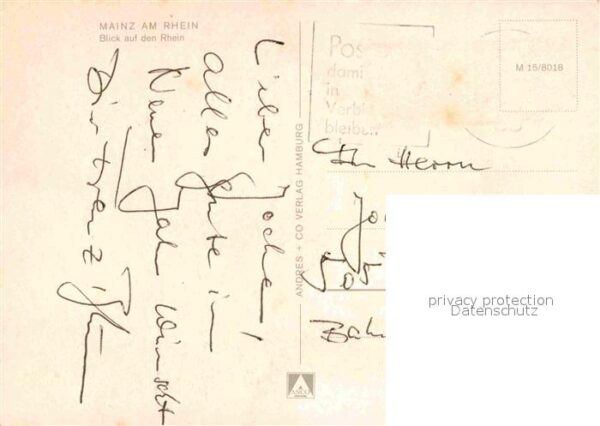 MAINZ AM RHEIN
Blick auf den Rhein
Lieber Jochen!
alles Gute im
Neuen Jahr wünscht
Dir
ANDRES + CO VERLAG HAMBURG
Pos
dami
in
Verbi
bleiben
M 15/8018
Herrn
Jo
Bah
privacy protection
Datenschutz